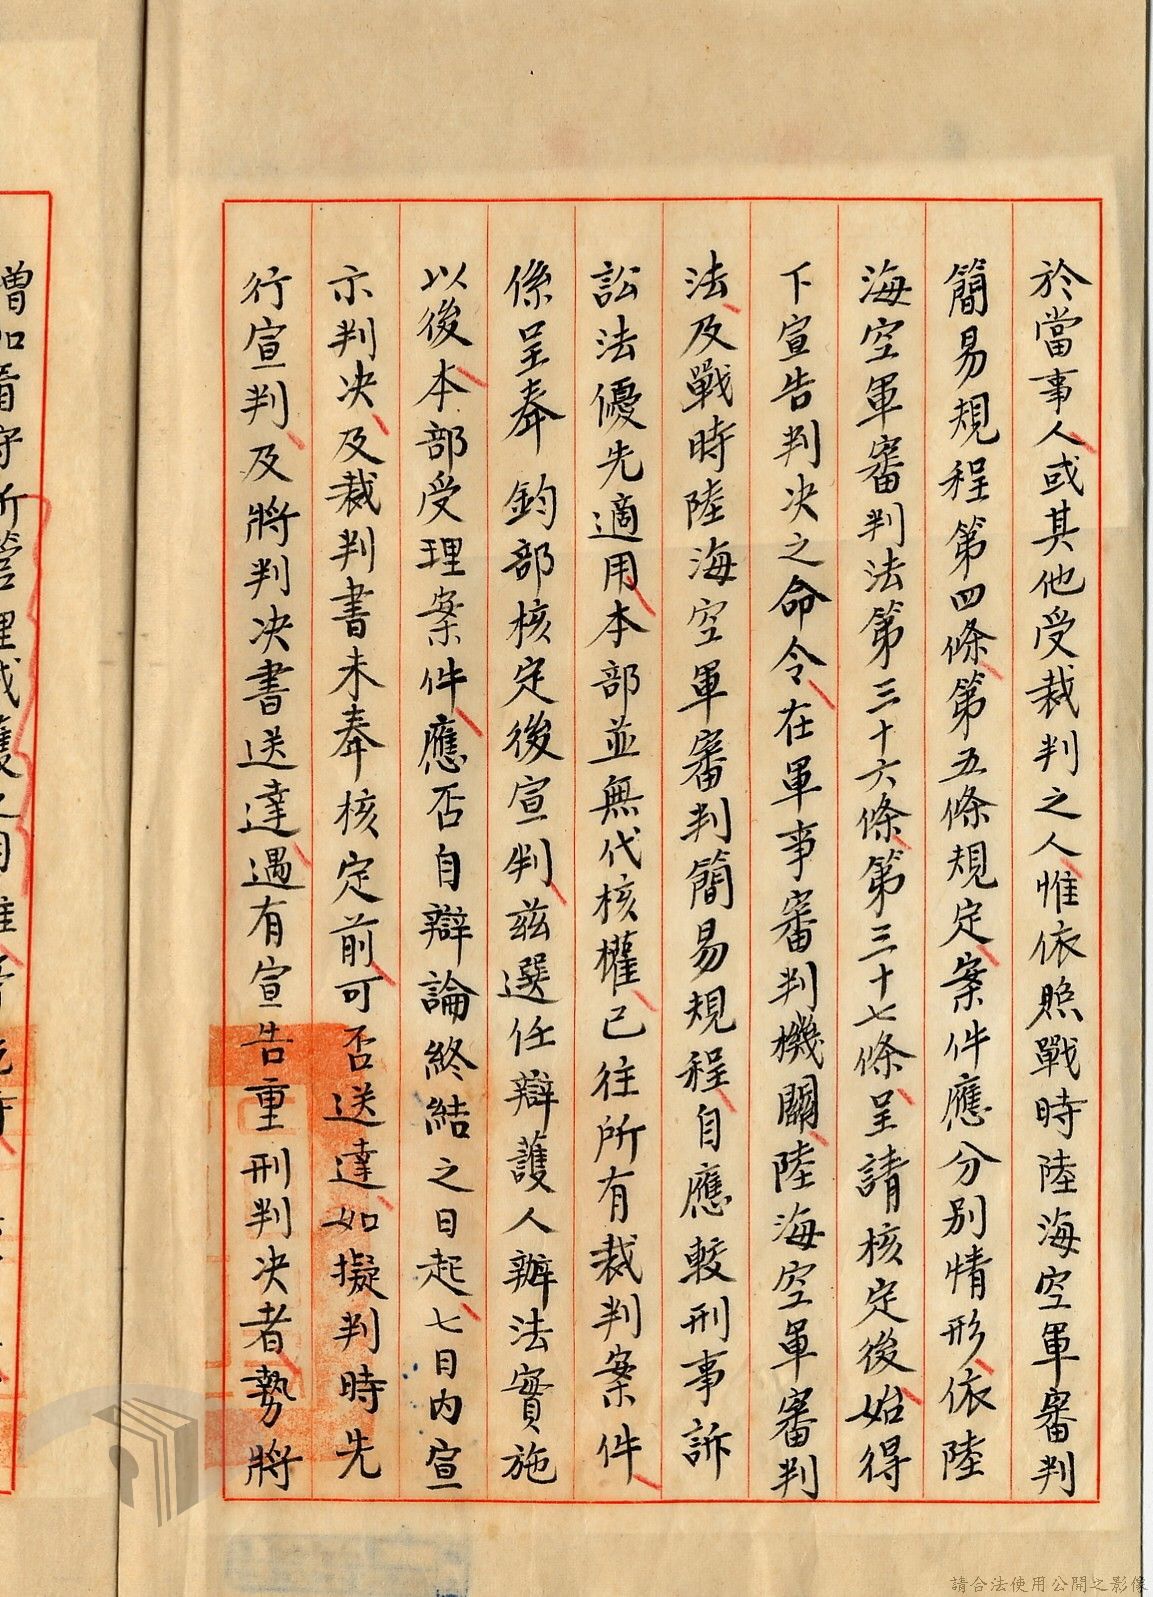 於當事人或其他受裁判之人惟依照戰時陸海空軍審判
簡易規程第四條第五條規定案件應分別情形依陸
海空軍審判法第三十六條第三十七條呈請核定後始得
下宣告判决之命令在軍事審判機關陸海空軍審判
法及戰時陸海空軍審判簡易規程自應較刑事訴
訟法優先適用本部並無代核權已往所有裁判案件
係呈奉 鈞部核定後宣判茲選任辯護人辦法實施
以後本部受理案件應否自辯論終結之日起七日內宣
示判决及裁判書未奉核定前可否送達如擬判時先
行宣判及將判决書送達遇有宣告重刑判决者勢將
請合法使用公開之影像